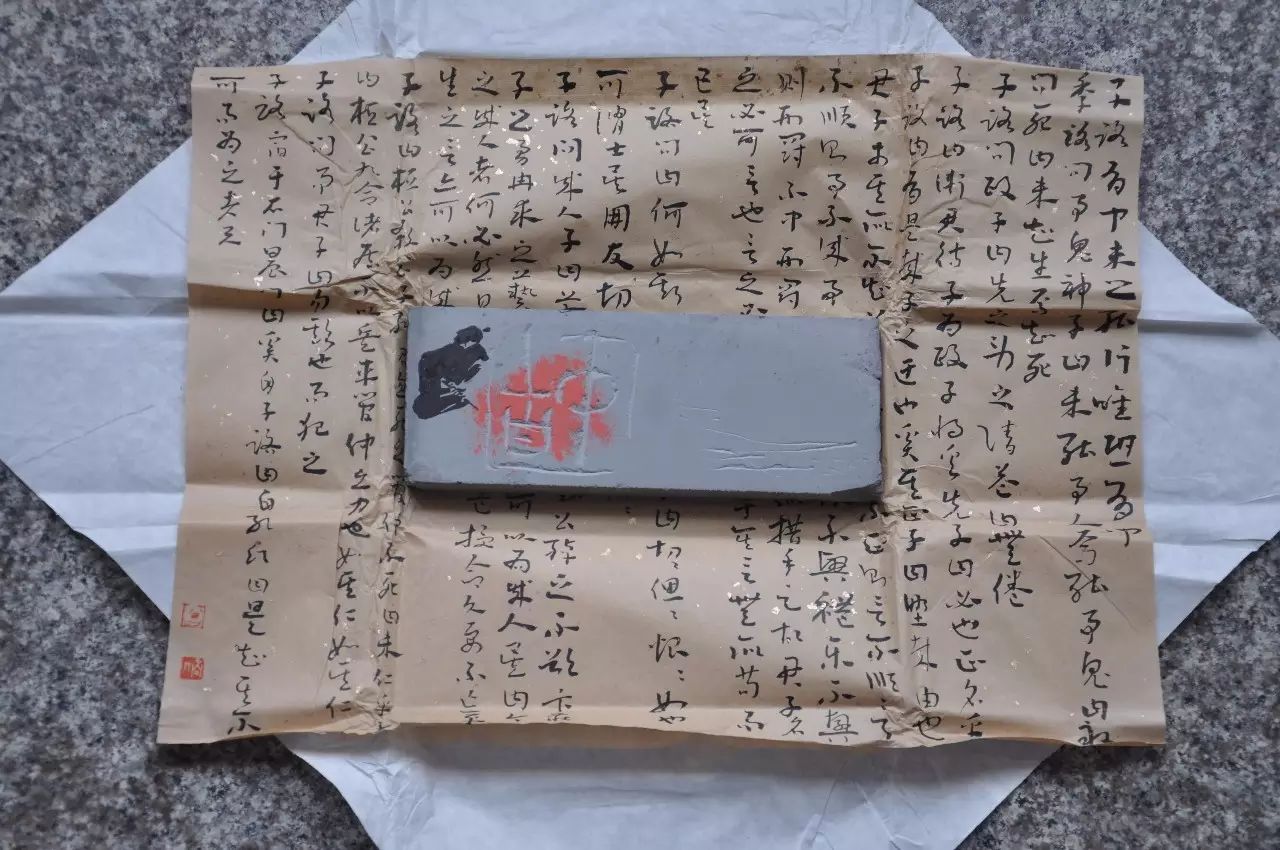 子路有聞未之能行唯恐有聞
季路問事鬼神子曰未能事人焉能事鬼曰敢
問死曰未知生焉知死
子路問政子曰先之勞之請益曰無倦
子路曰衛君待子為政子將奚先子曰必也正名乎
子路曰有是哉子之迂也奚其正子曰野哉由也
君子於其所不知不正則言不順言
不順則事不成事樂不興禮樂不興
則刑罰不中刑罰措手足故君子名
之必可言也言之必於其言無所苟而
已矣
子路問曰何如斯曰切切偲偲怡怡如也
可謂士矣朋友切
子路問成人子曰若公綽之不欲卞莊
子之勇冉求之藝可以為成人矣曰今
之成人者何必然曰危授命久要不忘平
生之言亦可以為成
子路曰桓公殺公不死曰未仁乎子
曰桓公九合諸侯不以兵車管仲之力也如其仁如其仁
子路問事君子曰勿欺也而犯之
子路宿于石門晨門曰奚自子路曰自孔氏曰是知其不
可而為之者與